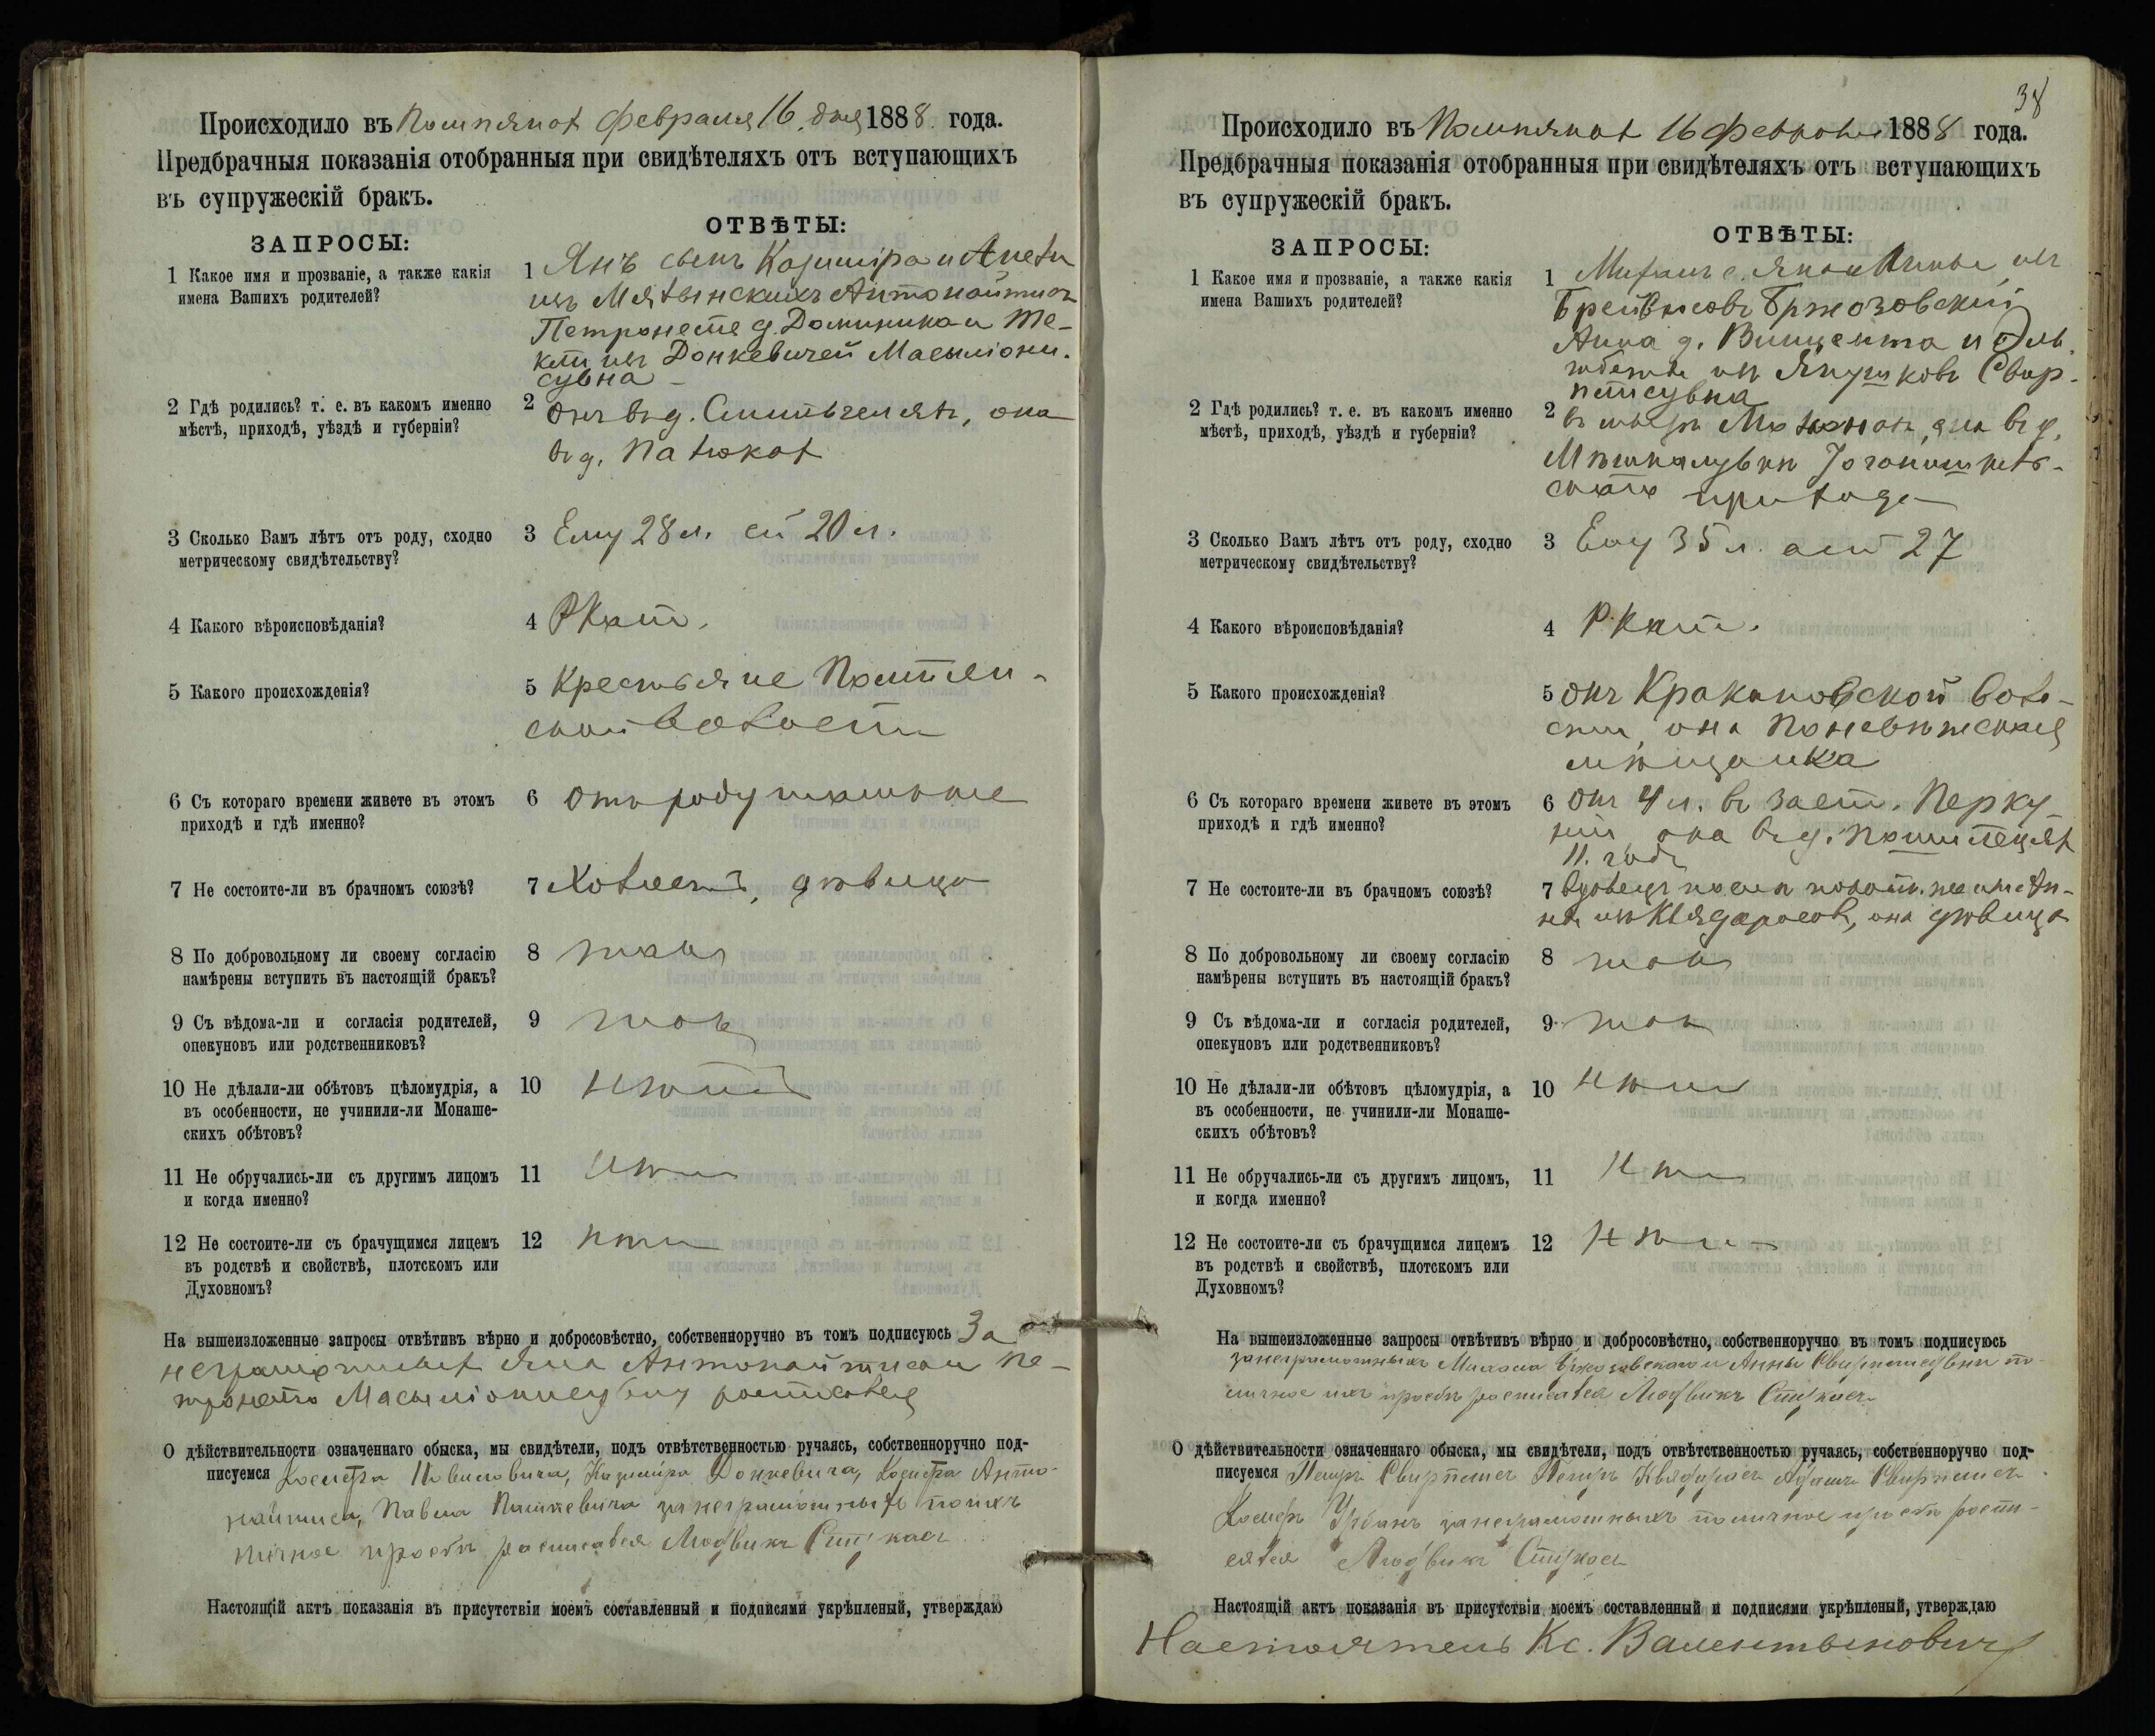 Происходило въ Помпянах февраля 16 дня 1888 года.
Предбрачныя показанія отобранныя при свидѣтеляхъ отъ вступающихъ
въ супружескій бракъ.
ЗАПРОСЫ:
ОТВѢТЫ:
1 Какое имя и прозваніе, а также какія
имена Вашихъ родителей?
1 Янъ сынъ Казиміра и Анеты
изъ Антонайтисъ
Петронеле д. Доминика и Те-
кли изъ Донкевичей Масыліони-
сувна
2 Гдѣ родились? т. е. въ какомъ именно
мѣстѣ, приходѣ, уѣздѣ и губерніи?
2 онъ въ д. она
въ д.
3 Сколько Вамъ лѣтъ отъ роду, сходно
метрическому свидѣтельству?
3 Ему 28 л. ей 20 л.
4 Какого вѣроисповѣданія?
4 Р Кат.
5 Какого происхожденія?
5 Крестьяне Помпян-
ской волости
6 Съ котораго времени живете въ этомъ
приходѣ и гдѣ именно?
6 Отъ роду
7 Не состоите-ли въ брачномъ союзѣ?
7 Холост, дѣвица
8 По добровольному ли своему согласію
намѣрены вступить въ настоящій бракъ?
8 такъ
9 Съ вѣдома-ли и согласія родителей,
опекуновъ или родственниковъ?
9 такъ
10 Не дѣлали-ли обѣтовъ цѣломудрія, а
въ особенности, не учинили-ли Монаше-
скихъ обѣтовъ?
10 нѣтъ
11 Не обручались-ли съ другимъ лицомъ
и когда именно?
11 нѣтъ
12 Не состоите-ли съ брачущимся лицемъ
въ родствѣ и свойствѣ, плотскомъ или
Духовномъ?
12 нѣтъ
На вышеизложенные запросы отвѣтивъ вѣрно и добросовѣстно, собственноручно въ томъ подписуюсь За
неграмотных Яна Антонайтиса и Пе-
тронелю Масыліонисувну
О дѣйствительности означеннаго обыска, мы свидѣтели, подъ отвѣтственностью ручаясь, собственноручно под-
писуемся Іосифа Казиміра Донкевича, Іосифа Анто-
найтиса, Павла неграмотных по их
личное просьбѣ росписался Людвикъ
Настоящій актъ показанія въ присутствіи моемъ составленный и подписями укрѣпленый, утверждаю
38
Происходило въ Помпянах 16 февраля 1888 года.
Предбрачныя показанія отобранныя при свидѣтеляхъ отъ вступающихъ
въ супружескій бракъ.
ЗАПРОСЫ:
ОТВѢТЫ:
1 Какое имя и прозваніе, а также какія
имена Вашихъ родителей?
1 Михаилъ с. Яна и Анны изъ
Бржозовскій
Анна д. Винцента и Эль-
жбеты изъ Свир-
писувна
2 Гдѣ родились? т. е. въ какомъ именно
мѣстѣ, приходѣ, уѣздѣ и губерніи?
2 она въ д.
прихода
3 Сколько Вамъ лѣтъ отъ роду, сходно
метрическому свидѣтельству?
3 Ему 35 л. а ей 27
4 Какого вѣроисповѣданія?
4 Р. Кат.
5 Какого происхожденія?
5 онъ Кракиновской воло-
сти, она Поневѣжская
мѣщанка
6 Съ котораго времени живете въ этомъ
приходѣ и гдѣ именно?
6 Онъ 4 л. въ заст.
она въ д.
11. годъ
7 Не состоите-ли въ брачномъ союзѣ?
7 Вдовецъ
изъ она дѣвица
8 По добровольному ли своему согласію
намѣрены вступить въ настоящій бракъ?
8 такъ
9 Съ вѣдома-ли и согласія родителей,
опекуновъ или родственниковъ?
9 такъ
10 Не дѣлали-ли обѣтовъ цѣломудрія, а
въ особенности, не учинили-ли Монаше-
скихъ обѣтовъ?
10 нѣтъ
11 Не обручались-ли съ другимъ лицомъ,
и когда именно?
11 нѣтъ
12 Не состоите-ли съ брачущимся лицемъ
въ родствѣ и свойствѣ, плотскомъ или
Духовномъ?
12 нѣтъ
На вышеизложенные запросы отвѣтивъ вѣрно и добросовѣстно, собственноручно въ томъ подписуюсь
за неграмотныхъ Михаила Бржозовскаго и Анны Свирписувны по
личное ихъ просьбѣ росписался Людвикъ
О дѣйствительности означеннаго обыска, мы свидѣтели, подъ отвѣтственностью ручаясь, собственноручно под-
писуемся Петръ Свирписъ Петръ Адамъ Свирписъ
Іосифъ Урбанъ за неграмотныхъ по личное просьбѣ роспи-
сался Людвикъ
Настоящій актъ показанія въ присутствіи моемъ составленный и подписями укрѣпленый, утверждаю
Настоятель Кс. Валентынович